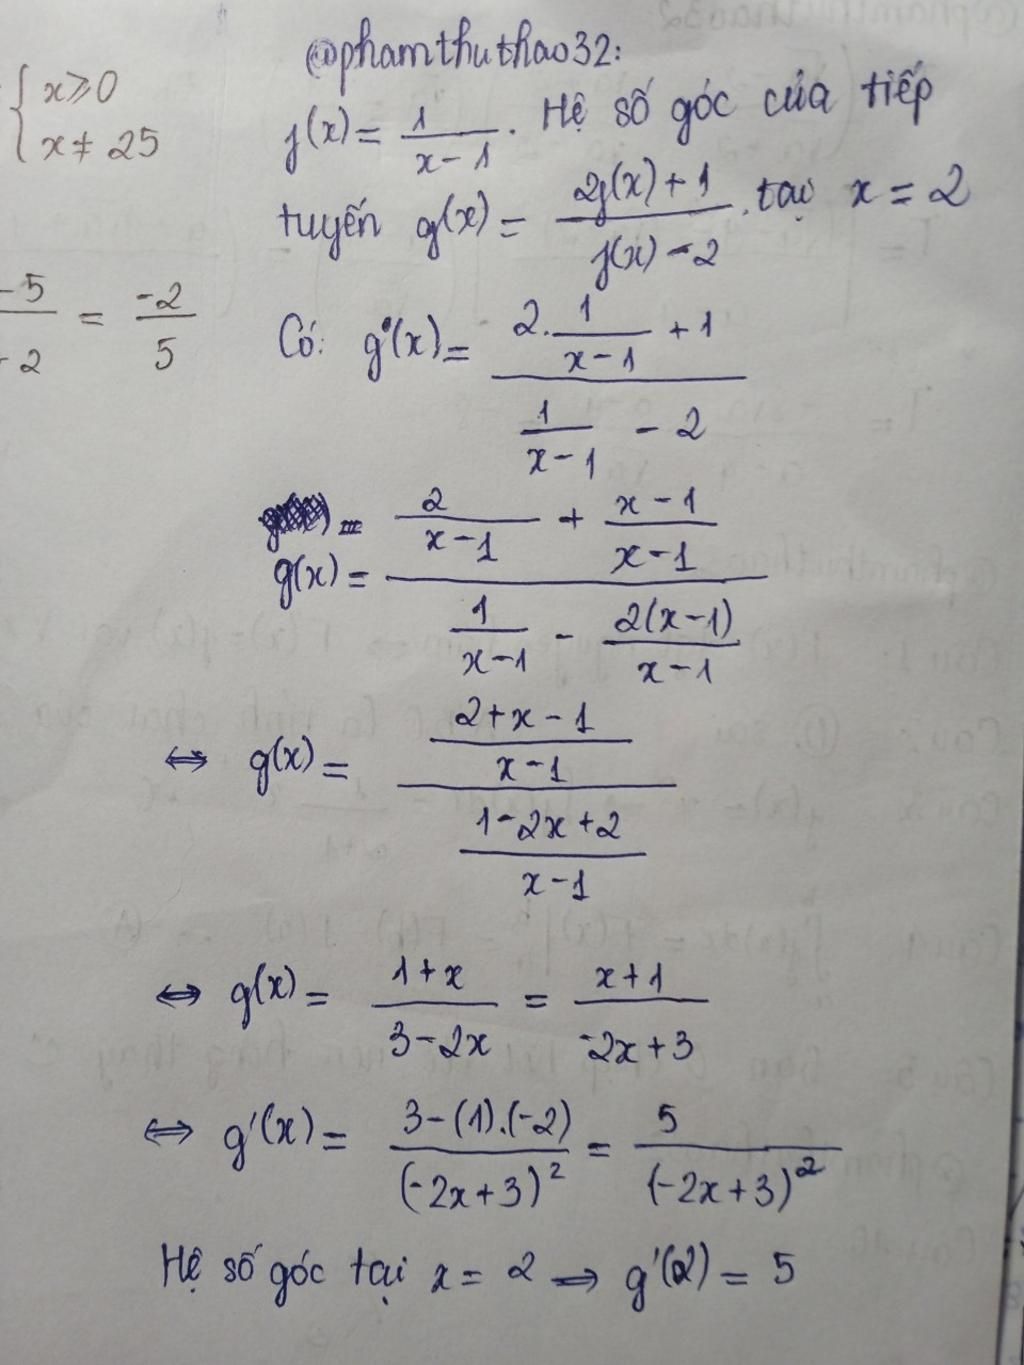 @phamthuthao32:
{ x ≥ 0
x ≠ 25
f(x) = 1/(x-1). Hệ số góc của tiếp
tuyến g(x) = (2f(x)+1)/(f(x)-2). tại x = 2
-5/+2 = -2/5
Có: g(x) = (2.1/(x-1) + 1)/(1/(x-1) - 2)
g(x) = (2/(x-1) + (x-1)/(x-1))/(1/(x-1) - 2(x-1)/(x-1))
⇔ g(x) = ((2+x-1)/(x-1))/((1-2x+2)/(x-1))
⇔ g(x) = (1+x)/(3-2x) = (x+1)/(-2x+3)
⇔ g'(x) = (3-(1).(-2))/(-2x+3)² = 5/(-2x+3)²
Hệ số góc tại x = 2 ⇒ g'(2) = 5